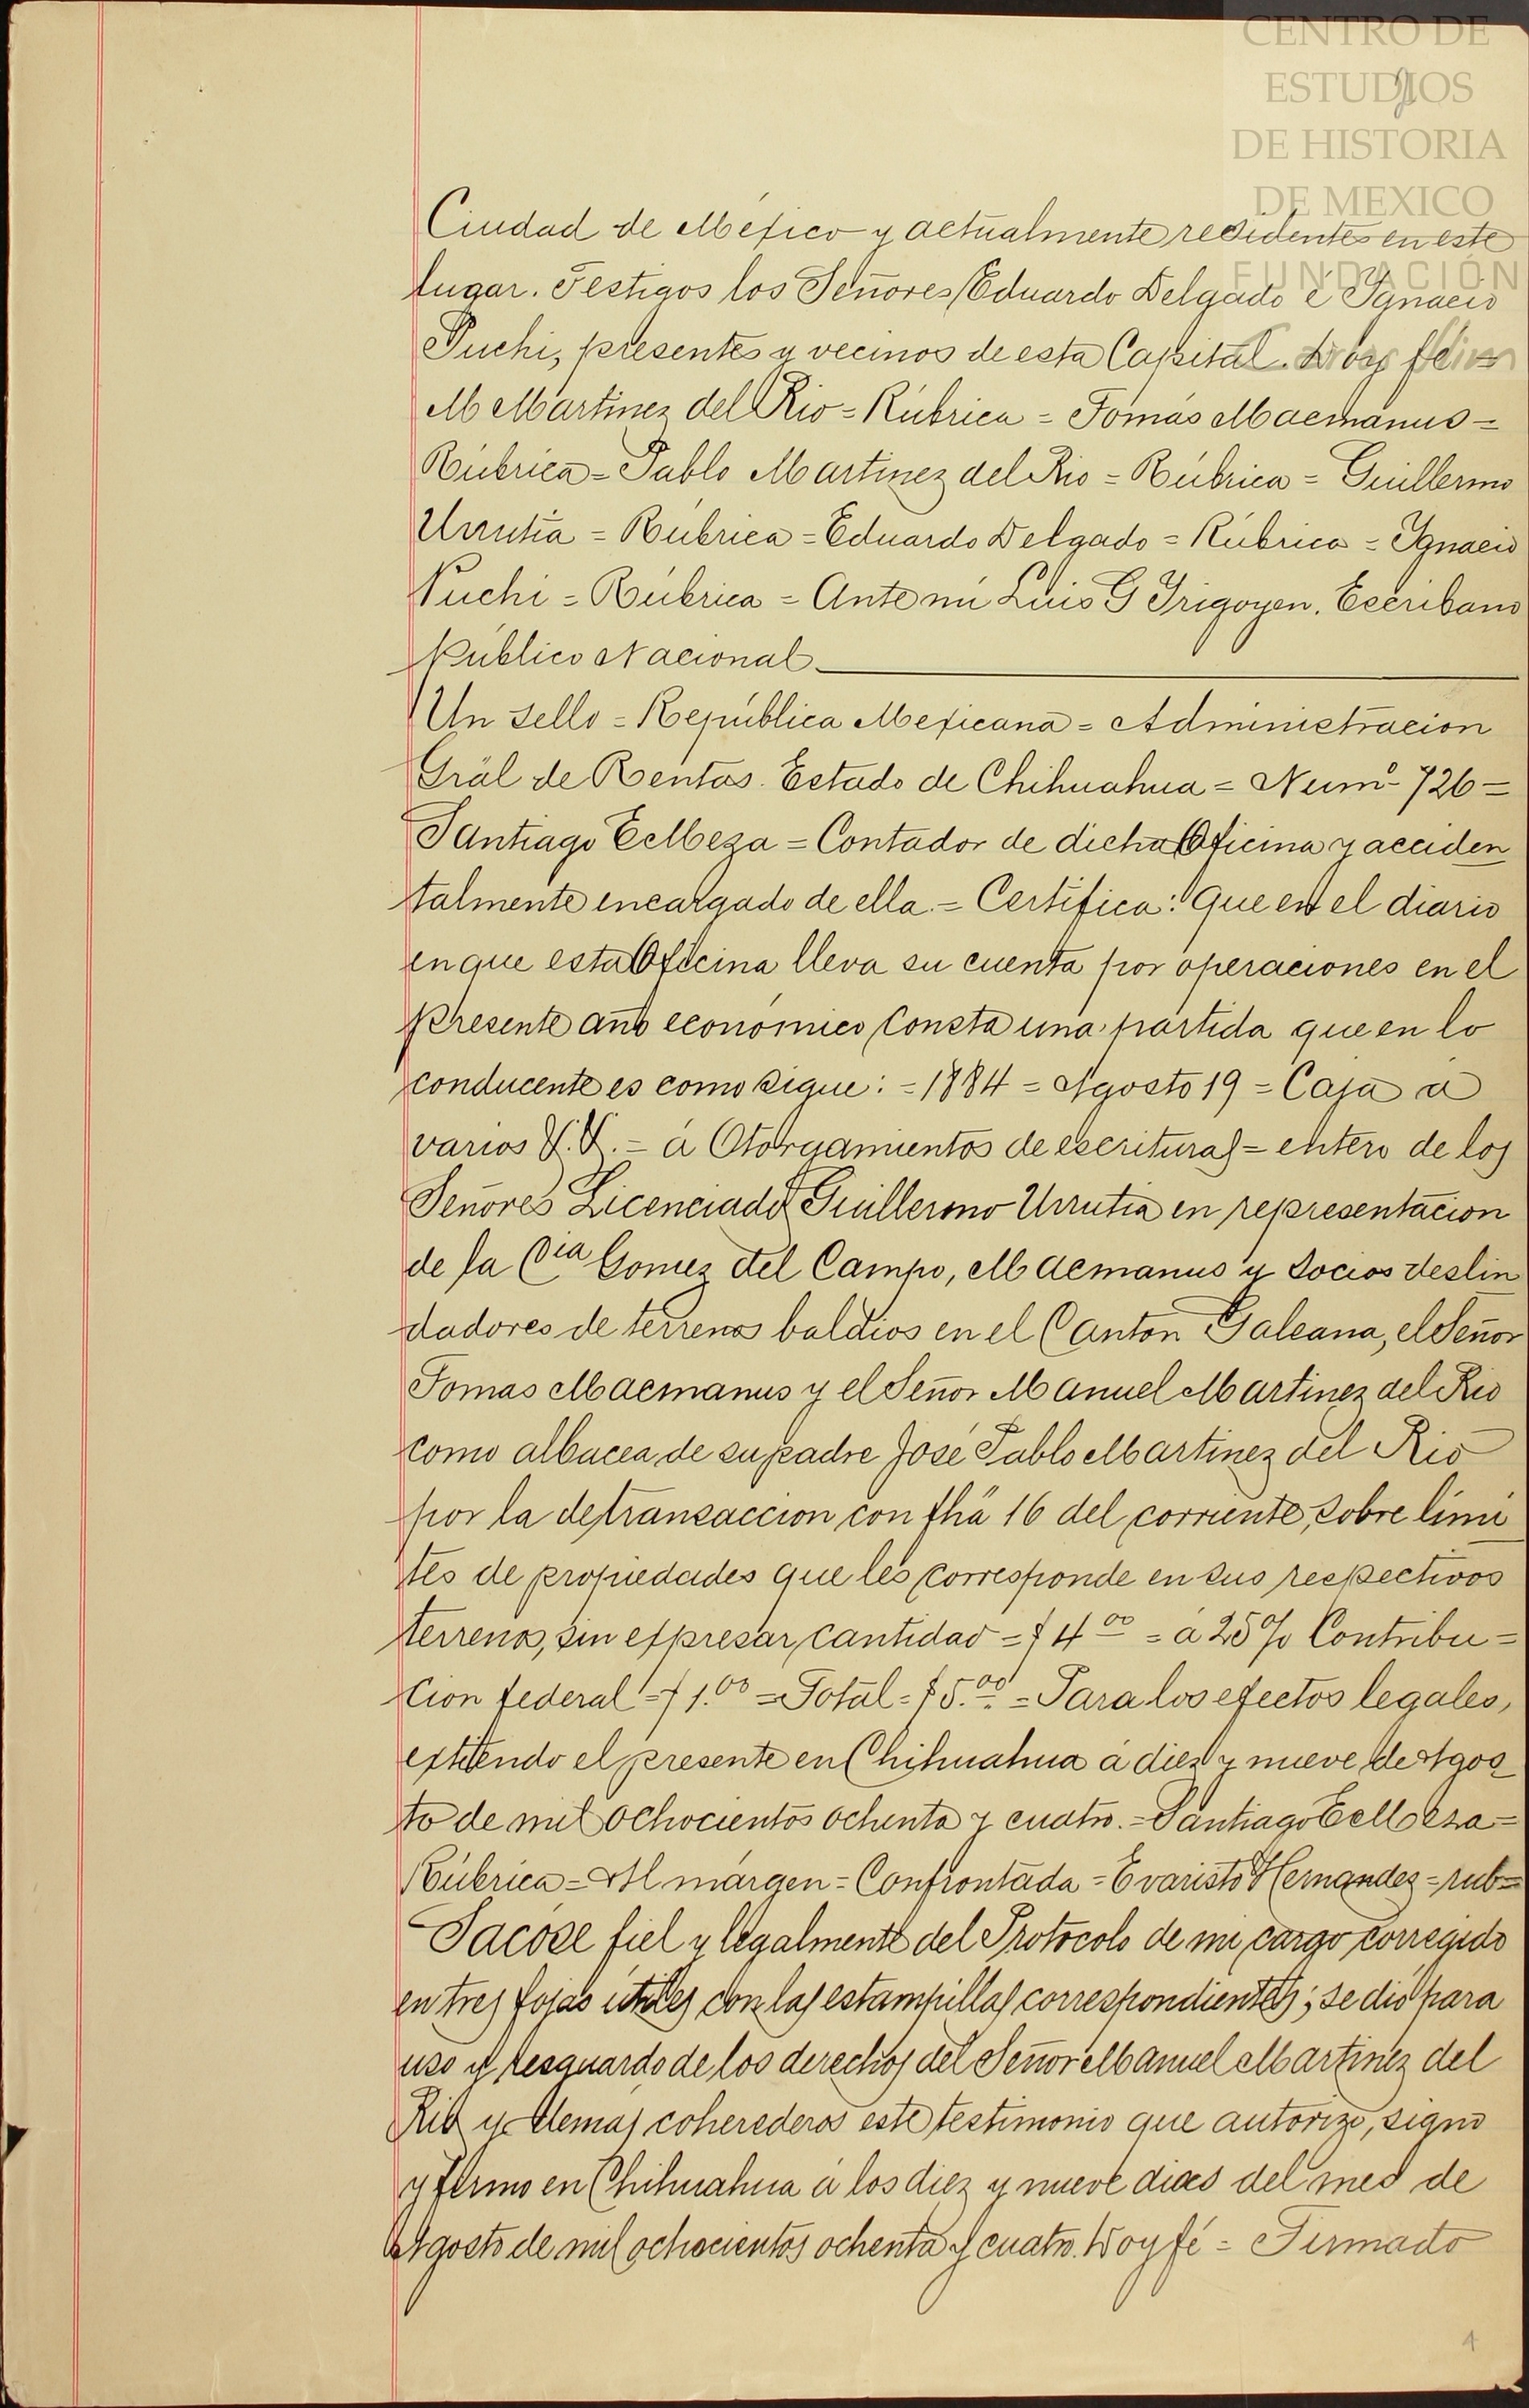 CENTRO DE
ESTUDIOS
DE HISTORIA
DE MEXICO
FUNDACIÓN
Ciudad de México y actualmente residentes en este
lugar. Testigos los Señores Eduardo Delgado é Ygnacio
Puchi, presentes y vecinos de esta Capital. Doy fé =
M Martinez del Rio = Rúbrica = Tomás Macmanus =
Rúbrica = Pablo Martinez del Rio = Rúbrica = Guillermo
Urrutia = Rúbrica = Eduardo Delgado = Rúbrica = Ygnacio
Puchi = Rúbrica = Ante mi Luis G Yrigoyen. Escribano
Público Nacional
Un sello = República Mexicana = Administracion
Gräl de Rentas. Estado de Chihuahua = Numº 726 =
Santiago E Meza = Contador de dicha Oficina y acciden
talmente encargado de ella. = Certifica: Que en el diario
en que esta Oficina lleva su cuenta por operaciones en el
presente año económico consta una partida que en lo
conducente es como sigue: = 1884 = Agosto 19 = Caja á
varios V.V. = á Otorgamientos de escrituras = entero de los
Señores Licenciado Guillermo Urrutia en representacion
de la Cia Gomez del Campo, Macmanus y Socios deslin
dadores de terrenos baldios en el Canton Galeana, el Señor
Tomas Macmanus y el Señor Manuel Martinez del Rio
como albacea de su padre José Pablo Martinez del Rio
por la de transaccion con fhä 16 del corriente, sobre limi
tes de propiedades que les corresponde en sus respectivos
terrenos, sin expresar cantidad = $ 4 00 = á 25% Contribu =
cion federal = $ 1.00 = Total = $ 5.00 = Para los efectos legales,
extiendo el presente en Chihuahua á diez y nueve de Agos
to de mil ochocientos ochenta y cuatro. = Santiago E Meza =
Rúbrica = Al márgen = Confrontada = Evaristo Hernandez = rub =
Sacóse fiel y legalmente del Protocolo de mi cargo corregido
en tres fojas útiles con las estampillas correspondientes; se dió para
uso y resguardo de los derechos del Señor Manuel Martinez del
Rio y demas coherederos este testimonio que autorizo, signo
y firmo en Chihuahua á los diez y nueve dias del mes de
Agosto de mil ochocientos ochenta y cuatro. Doy fé = Firmado
1